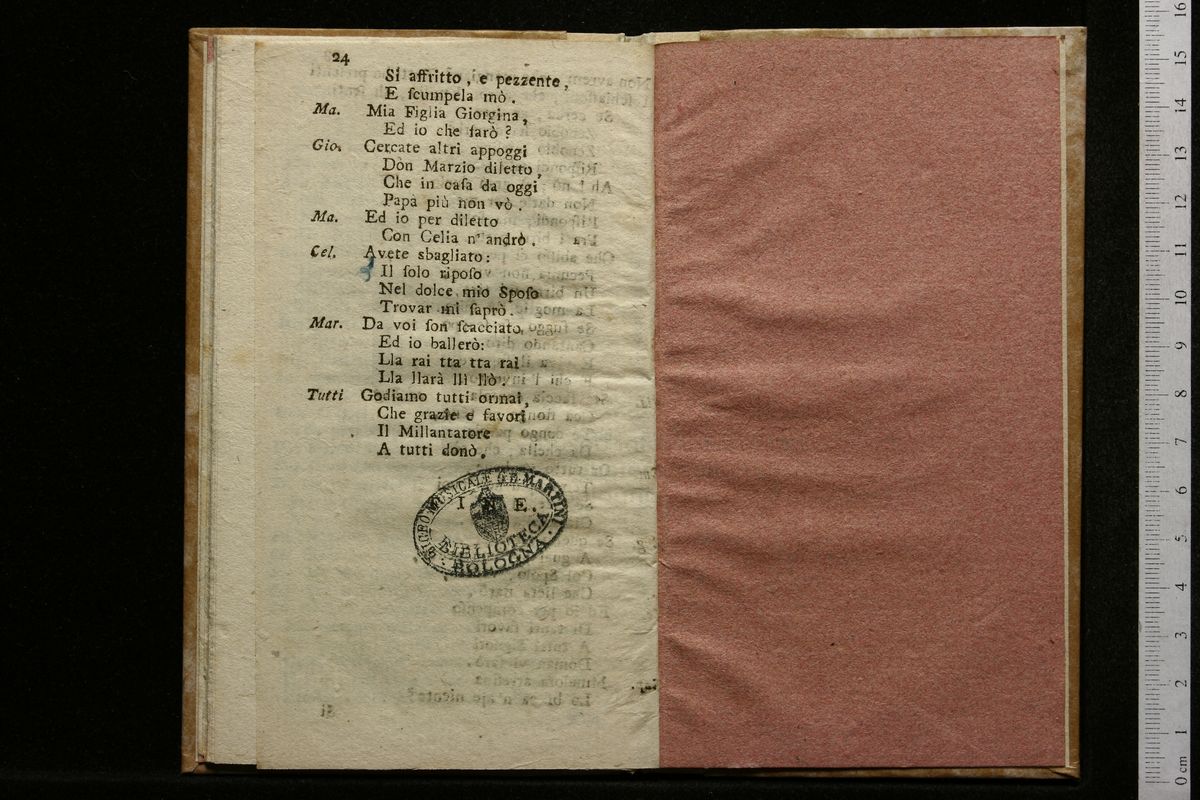 24
Si affritto, e pezzente,
E ſcumpela mò.
Ma. Mia Figlia Giorgina,
Ed io che farò?
Gio. Cercate altri appoggi
Dòn Marzio diletto,
Che in caſa da oggi
Papa più non vò.
Ma. Ed io per diletto
Con Celia n'andrò.
Cel. Avete sbagliato:
Il ſolo ripoſo
Nel dolce mio Spoſo
Trovar mi ſaprò.
Mar. Da voi ſon ſcacciato,
Ed io ballerò:
Lla rai tta tta rai
Lla llarà lll llò.
Tutti Godiamo tutti ormai,
Che grazie e favori
Il Millantatore
A tutti donò.
LICEO MUSICALE G.B. MARTINI
I N E.
BIBLIOTECA
BOLOGNA
16
15
14
13
12
11
10
9
8
7
6
5
4
3
2
1
0 cm